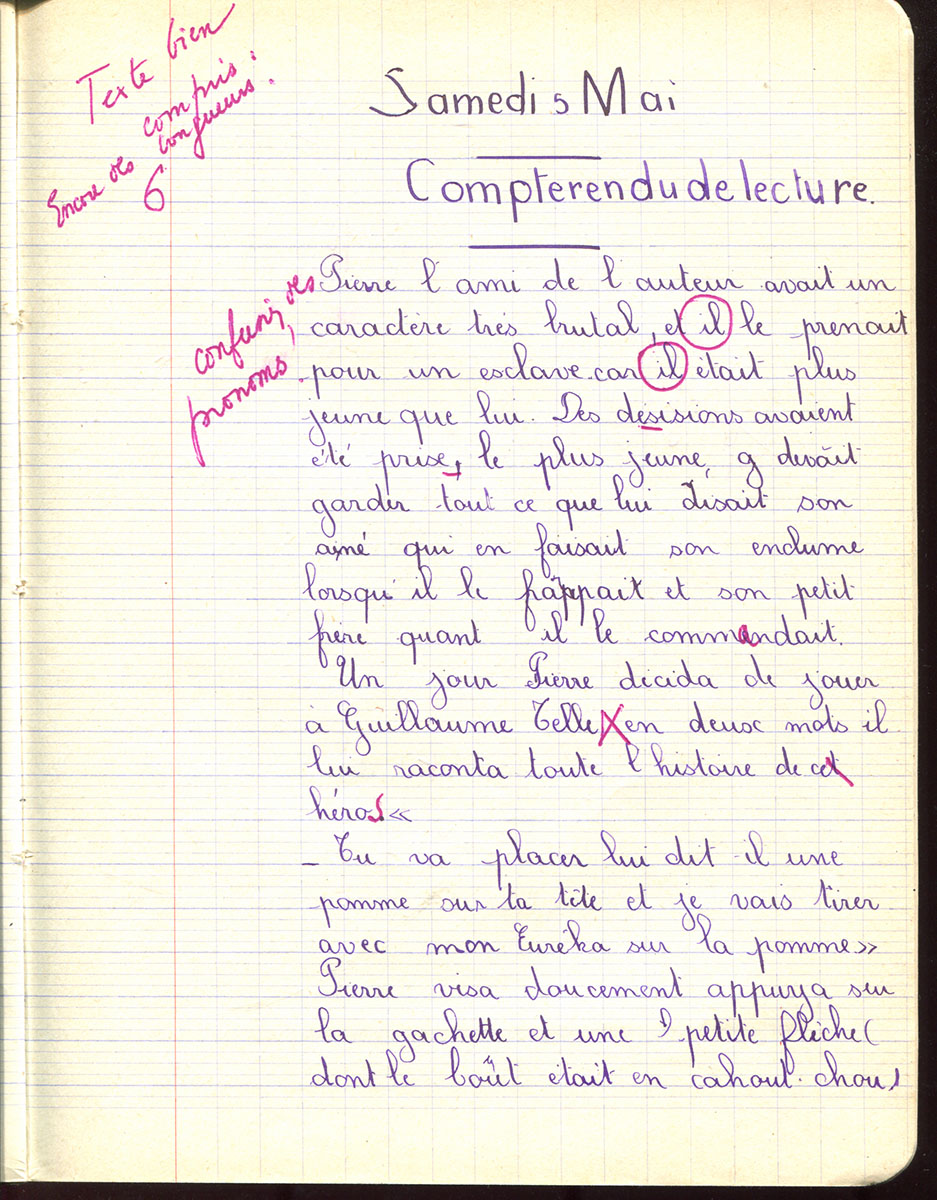 Texte bien
compris.
Encore des longueurs.
6
Samedi 5 Mai
Compte rendu de lecture.
confusion des
pronoms.
Pierre l'ami de l'auteur avait un
caractère très brutal, et il le prenait
pour un esclave car il était plus
jeune que lui. Des desisions avaient
été prise, le plus jeune, devait
garder tout ce que lui disait son
ainé qui en faisait son enclume
lorsqu'il le frappait et son petit
frère quant il le commandait.
Un jour Pierre décida de jouer
à Guillaume Telle en deux mots il
lui raconta toute l'histoire de cet
héros «
– Tu va placer lui dit-il une
pomme sur ta tête et je vais tirer
avec mon Euréka sur la pomme»
Pierre visa doucement appuya sur
la gachette et une petite flèche (
dont le boût était en cahout-chou)